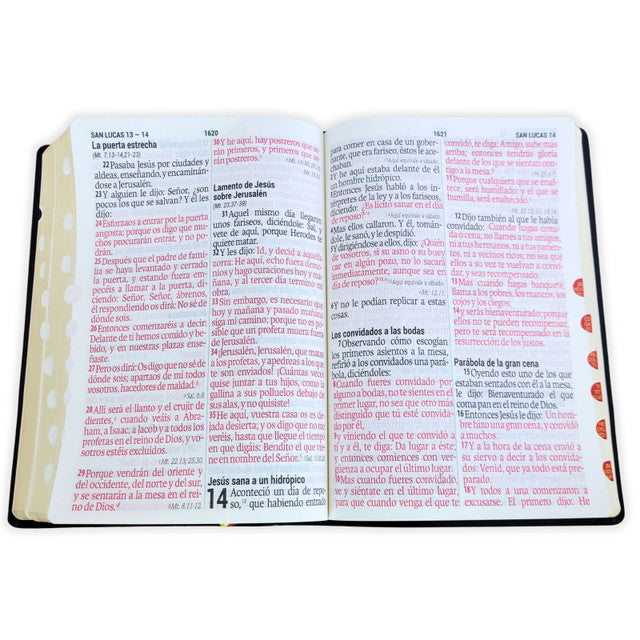 SAN LUCAS 13 – 14
1620
La puerta estrecha
(Mt. 7.13-14,21-23)
22 Pasaba Jesús por ciudades y
aldeas, enseñando, y encaminán-
dose a Jerusalén.
23 Y alguien le dijo: Señor, ¿son
pocos los que se salvan? Y él les
dijo:
24 Esforzaos a entrar por la puerta
angosta; porque os digo que mu-
chos procurarán entrar, y no po-
drán.
25 Después que el padre de fami-
lia se haya levantado y cerrado
la puerta, y estando fuera em-
pecéis a llamar a la puerta, di-
ciendo: Señor, Señor, ábrenos,
él respondiendo os dirá: No sé de
dónde sois.
26 Entonces comenzaréis a decir:
Delante de ti hemos comido y be-
bido, y en nuestras plazas ense-
ñaste.
27 Pero os dirá: Os digo que no sé de
dónde sois; apartaos de mí todos
vosotros, hacedores de maldad.
Sal. 6.8.
28 Allí será el llanto y el crujir de
dientes, cuando veáis a Abra-
ham, a Isaac, a Jacob y a todos los
profetas en el reino de Dios, y vo-
sotros estéis excluidos.
Mt. 22.13; 25.30.
29 Porque vendrán del oriente y
del occidente, del norte y del sur,
y se sentarán a la mesa en el rei-
no de Dios.
Mt. 8.11-12.
30 Y he aquí, hay postreros que se-
rán primeros, y primeros que se-
rán postreros.
Lamento de Jesús
sobre Jerusalén
(Mt. 23.37-39)
31 Aquel mismo día llegaron
unos fariseos, diciéndole: Sal, y
vete de aquí, porque Herodes te
quiere matar.
32 Y les dijo: Id, y decid a aquella
zorra: He aquí, echo fuera demo-
nios y hago curaciones hoy y ma-
ñana, y al tercer día termino mi
obra.
33 Sin embargo, es necesario que
hoy y mañana y pasado mañana
siga mi camino; porque no es po-
sible que un profeta muera fuera
de Jerusalén.
34 ¡Jerusalén, Jerusalén, que matas
a los profetas, y apedreas a los que
te son enviados! ¡Cuántas veces
quise juntar a tus hijos, como la
gallina a sus polluelos debajo de
sus alas, y no quisiste!
35 He aquí, vuestra casa os es de-
jada desierta; y os digo que no me
veréis, hasta que llegue el tiempo
en que digáis: Bendito el que vie-
ne en nombre del Señor.
Jesús sana a un hidrópico
14 Aconteció un día de repo-
so, que habiendo entrado
1621
SAN LUCAS 14
para comer en casa de un gober-
nante, que era fariseo, éstos le ace-
chaban.
Aquí equivale a sábado.
2 Y he aquí estaba delante de él
un hombre hidrópico.
3 Entonces Jesús habló a los in-
térpretes de la ley y a los fariseos,
diciendo: ¿Es lícito sanar en el día
de reposo?
Aquí equivale a sábado.
4 Mas ellos callaron. Y él, tomán-
dole, le sanó, y le despidió.
5 Y dirigiéndose a ellos, dijo: ¿Quién
de vosotros, si su asno o su buey
cae en algún pozo, no lo sacará
inmediatamente, aunque sea en
día de reposo?
Mt. 12.11.
Aquí equivale a sábado.
6 Y no le podían replicar a estas
cosas.
Los convidados a las bodas
7 Observando cómo escogían
los primeros asientos a la mesa,
refirió a los convidados una pará-
bola, diciéndoles:
8 Cuando fueres convidado por
alguno a bodas, no te sientes en el
primer lugar, no sea que otro más
distinguido que tú esté convidado
por él,
9 y viniendo el que te convidó a
ti y a él, te diga: Da lugar a éste;
y entonces comiences con ver-
güenza a ocupar el último lugar.
10 Mas cuando fueres convidado,
ve y siéntate en el último lugar,
para que cuando venga el que te
convidó, te diga: Amigo, sube más
arriba; entonces tendrás gloria
delante de los que se sientan con-
tigo a la mesa.
Pr. 25.6-7.
11 Porque cualquiera que se enal-
tece, será humillado; y el que se
humilla, será enaltecido.
12 Dijo también al que le había
convidado: Cuando hagas comi-
da o cena, no llames a tus amigos,
ni a tus hermanos, ni a tus parien-
tes, ni a vecinos ricos; no sea que
ellos a su vez te vuelvan a convi-
dar, y seas recompensado.
13 Mas cuando hagas banquete,
llama a los pobres, los mancos, los
cojos y los ciegos;
14 y serás bienaventurado; porque
ellos no te pueden recompensar,
pero te será recompensado en la
resurrección de los justos.
Parábola de la gran cena
15 Oyendo esto uno de los que
estaban sentados con él a la mesa,
le dijo: Bienaventurado el que
coma pan en el reino de Dios.
16 Entonces Jesús le dijo: Un hom-
bre hizo una gran cena, y convidó
a muchos.
17 Y a la hora de la cena envió a
su siervo a decir a los convidados:
Venid, que ya todo está prepa-
rado.
18 Y todos a una comenzaron a
excusarse. El primero dijo: He